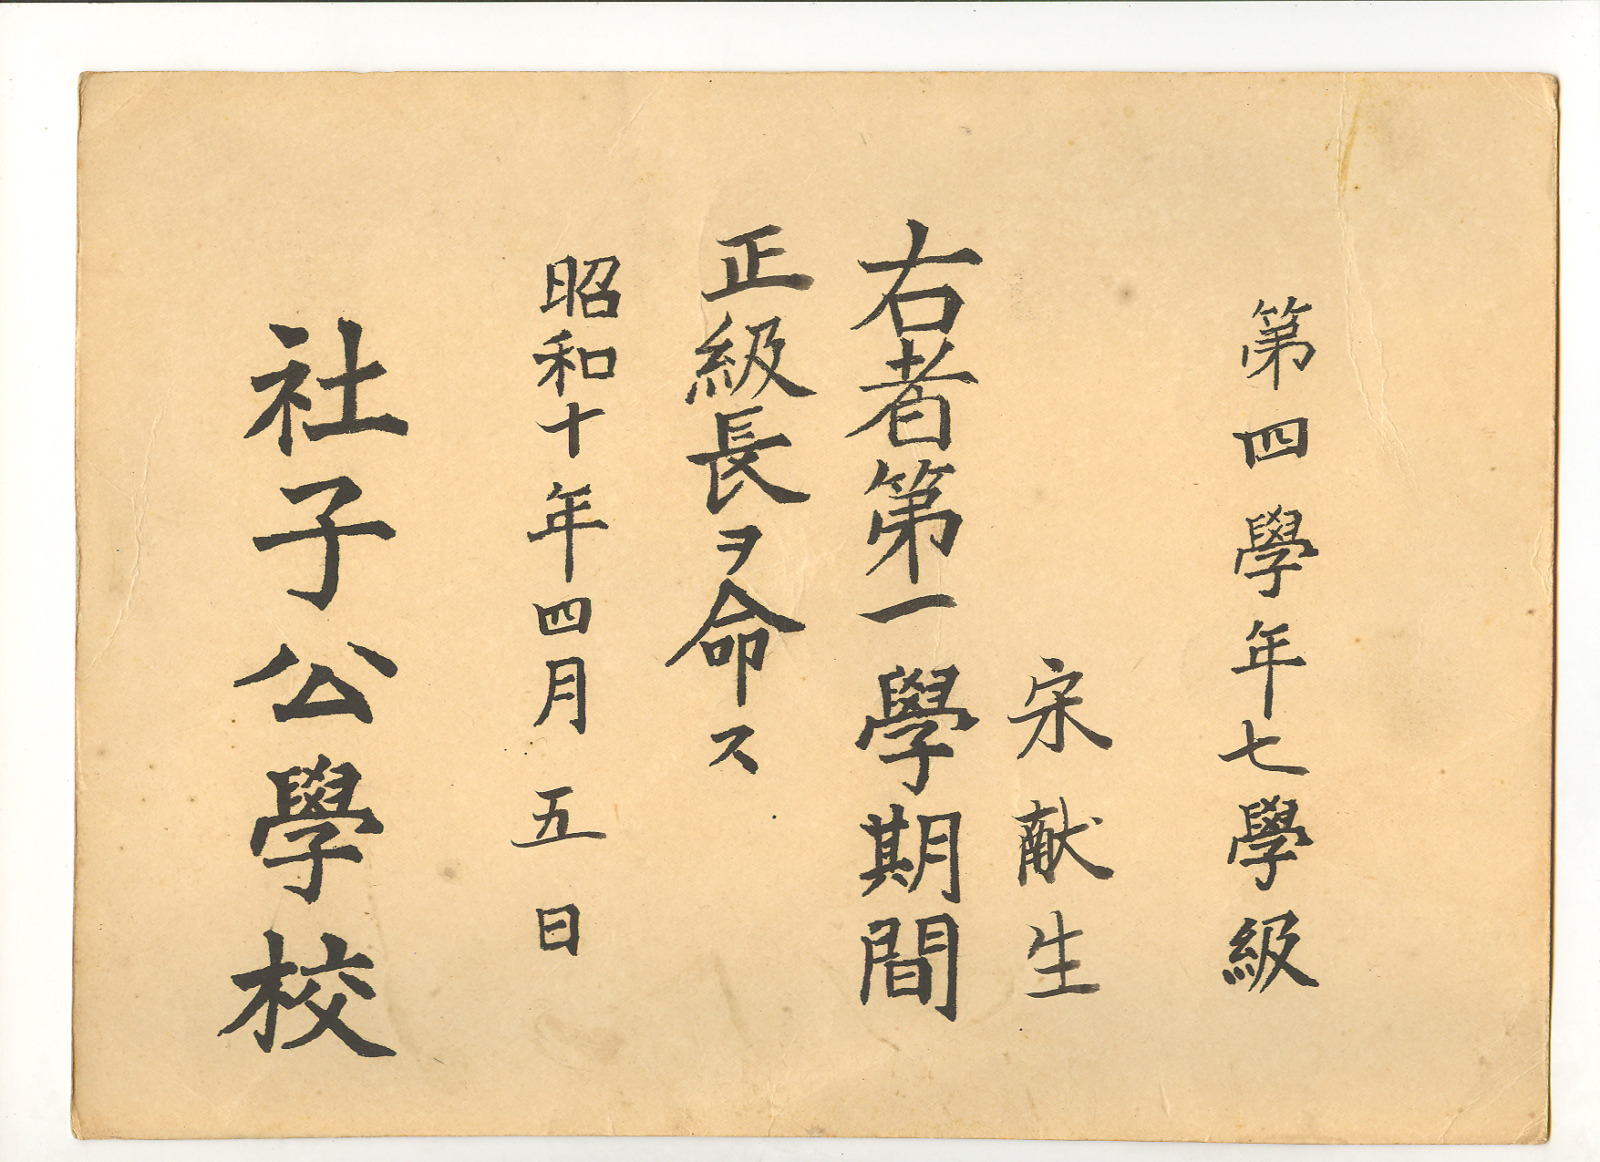 第四學年七學級
宋献生
右者第一學期間
正級長ヲ命ス
昭和十年四月五日
社子公學校